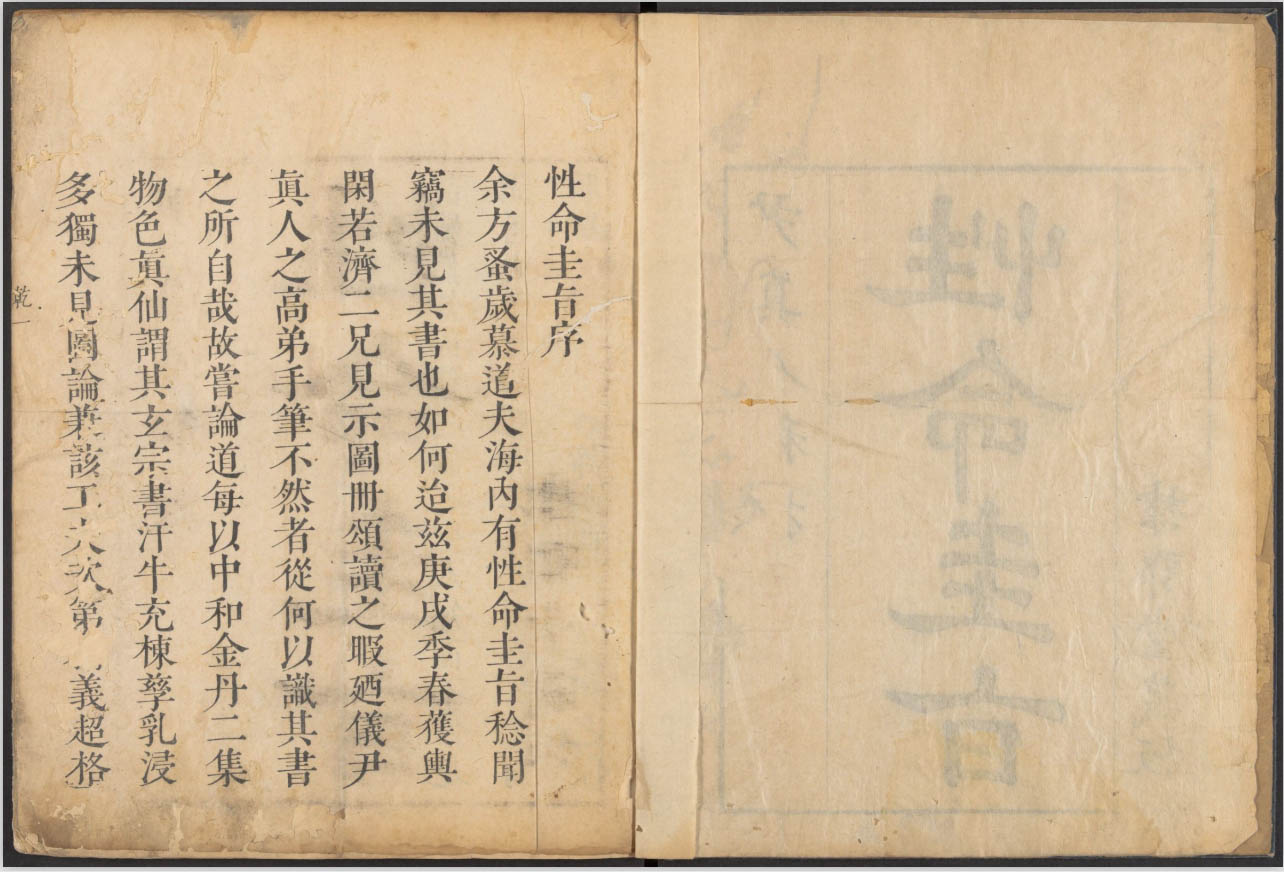 性命圭旨
性命圭旨序
余方蚤歲慕道夫海內有性命圭旨稔聞
竊未見其書也如何迨茲庚戌季春獲輿
閑若濟二兄見示圖冊頌讀之暇廼儀尹
眞人之高弟手筆不然者從何以識其書
之所自哉故嘗論道每以中和金丹二集
物色眞仙謂其玄宗書汗牛充棟孳乳浸
多獨未見圖論兼該工夫次第義超格
乾一